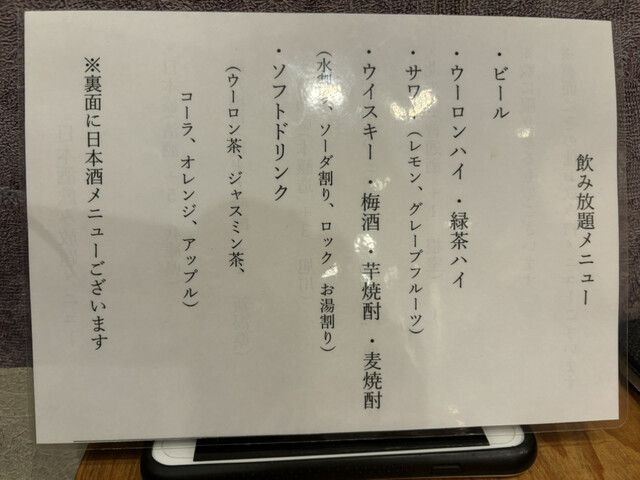 飲み放題メニュー
・ビール
・ウーロンハイ ・緑茶ハイ
・サワー（レモン、グレープフルーツ）
・ウイスキー ・梅酒 ・芋焼酎 ・麦焼酎
（水割り、ソーダ割り、ロック お湯割り）
・ソフトドリンク
（ウーロン茶、ジャスミン茶、
コーラ、オレンジ、アップル）
※裏面に日本酒メニューございます